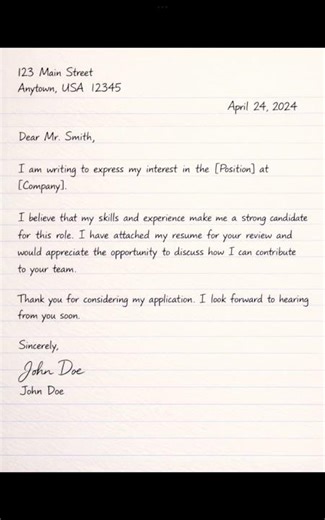 123 Main Street
Anytown, USA 12345
April 24, 2024
Dear Mr. Smith,
I am writing to express my interest in the [Position] at
[Company].
I believe that my skills and experience make me a strong candidate
for this role. I have attached my resume for your review and
would appreciate the opportunity to discuss how I can contribute
to your team.
Thank you for considering my application. I look forward to hearing
from you soon.
Sincerely,
John Doe
John Doe